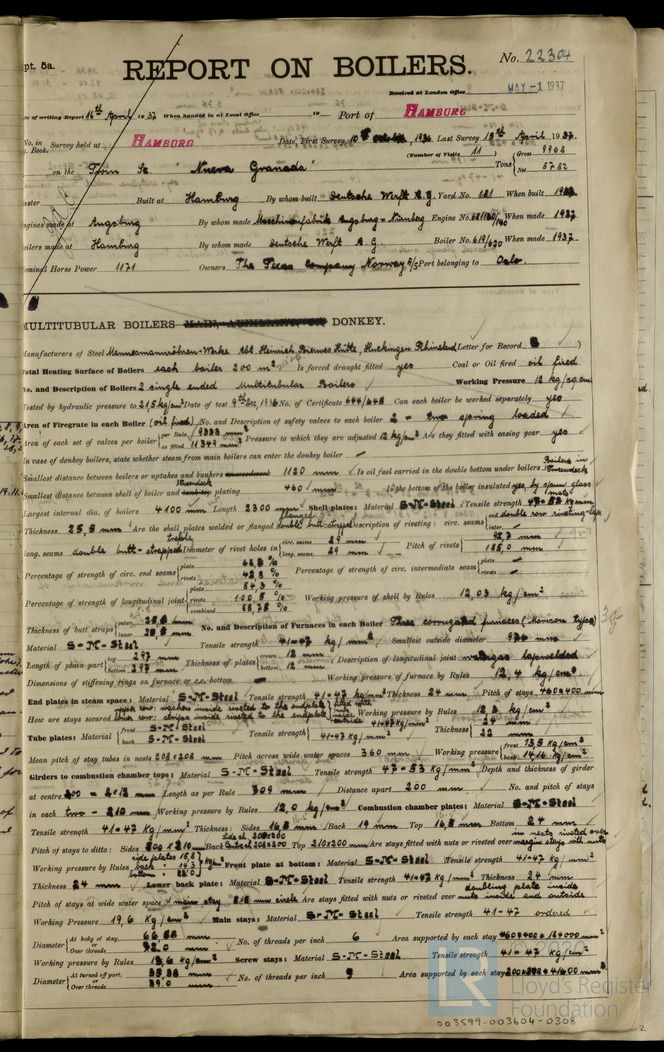 pt. 5a.
No. 22304
REPORT ON BOILERS.
Received at London Office
MAY -1 1937
Date of writing Report 16th April 1937 When handed in at Local Office 19 Port of HAMBURG
No. in Reg. Book. Survey held at HAMBURG Date, First Survey 10th October, 1936 Last Survey 13th April 1937
(Number of Visits 11)
on the Twin Sc. "Nueva Granada" Tons Gross 9968 Net 5782
Built at Hamburg By whom built Deutsche Werft A.G. Yard No. 181 When built 1937
Engines made at Augsburg By whom made Maschinenfabrik Augsburg-Nürnberg Engine No. When made 1937
Boilers made at Hamburg By whom made Deutsche Werft A.G. Boiler No. 619/620 When made 1937.
Nominal Horse Power 1171 Owners The Texas Company Norway A/S Port belonging to Oslo.
MULTITUBULAR BOILERS MAIN, AUXILIARY, OR DONKEY.
Manufacturers of Steel Mannesmannröhren-Werke Abt. Heinrich Bierwes Hütte, Huckingen Rheinland (Letter for Record S)
Total Heating Surface of Boilers each boiler 200 m² Is forced draught fitted yes Coal or Oil fired oil fired
No. and Description of Boilers 2 single ended Multitubular Boilers Working Pressure 12 kg/sq.cm
Tested by hydraulic pressure to 21,5 kg/cm² Date of test 9th Dec. 1936 No. of Certificate 644/645 Can each boiler be worked separately yes
Area of Firegrate in each Boiler (oil fired) No. and Description of safety valves to each boiler 2 - two spring loaded
Area of each set of valves per boiler per Rule as fitted 11349 mm² Pressure to which they are adjusted 12 kg/cm² Are they fitted with easing gear yes
In case of donkey boilers, state whether steam from main boilers can enter the donkey boiler –
Smallest distance between boilers or uptakes and bunkers 1120 mm Is oil fuel carried in the double bottom under boilers Boilers in Tweendeck
Smallest distance between shell of boiler and Tweendeck plating 460 mm Is the bottom of the boiler insulated yes, by spun glass mats
Largest internal dia. of boilers 4100 mm Length 2300 mm Shell plates: Material S-M-Steel Tensile strength
Thickness 25,5 mm Are the shell plates welded or flanged Description of riveting: circ. seams end double row riveting-lap
long. seams treble double butt-strapped Diameter of rivet holes in circ. seams 29 mm long. seams 29 mm Pitch of rivets
Percentage of strength of circ. end seams plate rivets Percentage of strength of circ. intermediate seam plate rivets
Percentage of strength of longitudinal joint plate rivets combined Working pressure of shell by Rules 12,03 kg/cm²
Thickness of butt straps outer inner No. and Description of Furnaces in each Boiler Three corrugated furnaces (Morison type)
Material S-M-Steel Tensile strength 41-47 kg/mm² Smallest outside diameter 974 mm
Length of plain part top 297 mm bottom 297 mm Thickness of plates crown 12 mm bottom 12 mm Description of longitudinal joint watergas lapwelded
Dimensions of stiffening rings on furnace or c.c. bottom – Working pressure of furnace by Rules 12,4 kg/cm².
End plates in steam space: Material S-M-Steel Tensile strength 41-47 kg/mm² Thickness 24 mm Pitch of stays 460x400 mm
How are stays secured Working pressure by Rules 12,3 kg/cm²
Tube plates: Material front S-M-Steel back S-M-Steel Tensile strength 41-47 kg/mm² Thickness 24 mm 22 mm
Mean pitch of stay tubes in nests 208x208 mm Pitch across wide water spaces 360 mm Working pressure front 13,5 kg/cm² back 14,16 kg/cm²
Girders to combustion chamber tops: Material S-M-Steel Tensile strength 47-53 kg/mm² Depth and thickness of girder
at centre Length as per Rule 709 mm Distance apart 200 mm No. and pitch of stays
in each two - 210 mm Working pressure by Rules 12,0 kg/cm² Combustion chamber plates: Material S-M-Steel
Tensile strength 41-47 kg/mm² Thickness: Sides 16,5 mm Back 19 mm Top 16,5 mm Bottom 24 mm
Pitch of stays to ditto: Sides Back Top 210x200 mm Are stays fitted with nuts or riveted over in nests riveted over margin stays with nuts
Working pressure by Rules Front plate at bottom: Material S-M-Steel Tensile strength 41-47 kg/mm²
Thickness 24 mm Lower back plate: Material S-M-Steel Tensile strength 41-47 kg/mm² Thickness 24 mm
Pitch of stays at wide water space Are stays fitted with nuts or riveted over doubling plate inside nuts inside and outside
Working Pressure 19,6 kg/cm² Main stays: Material S-M-Steel Tensile strength 41-47 ordered
Diameter At body of stay, or Over threads No. of threads per inch 6 Area supported by each stay
Working pressure by Rules Screw stays: Material S-M-Steel Tensile strength 41-47 kg/mm²
Diameter At turned off part, or Over threads No. of threads per inch 9 Area supported by each stay
© 2020
LR Lloyd's Register Foundation
003599-003604-0308